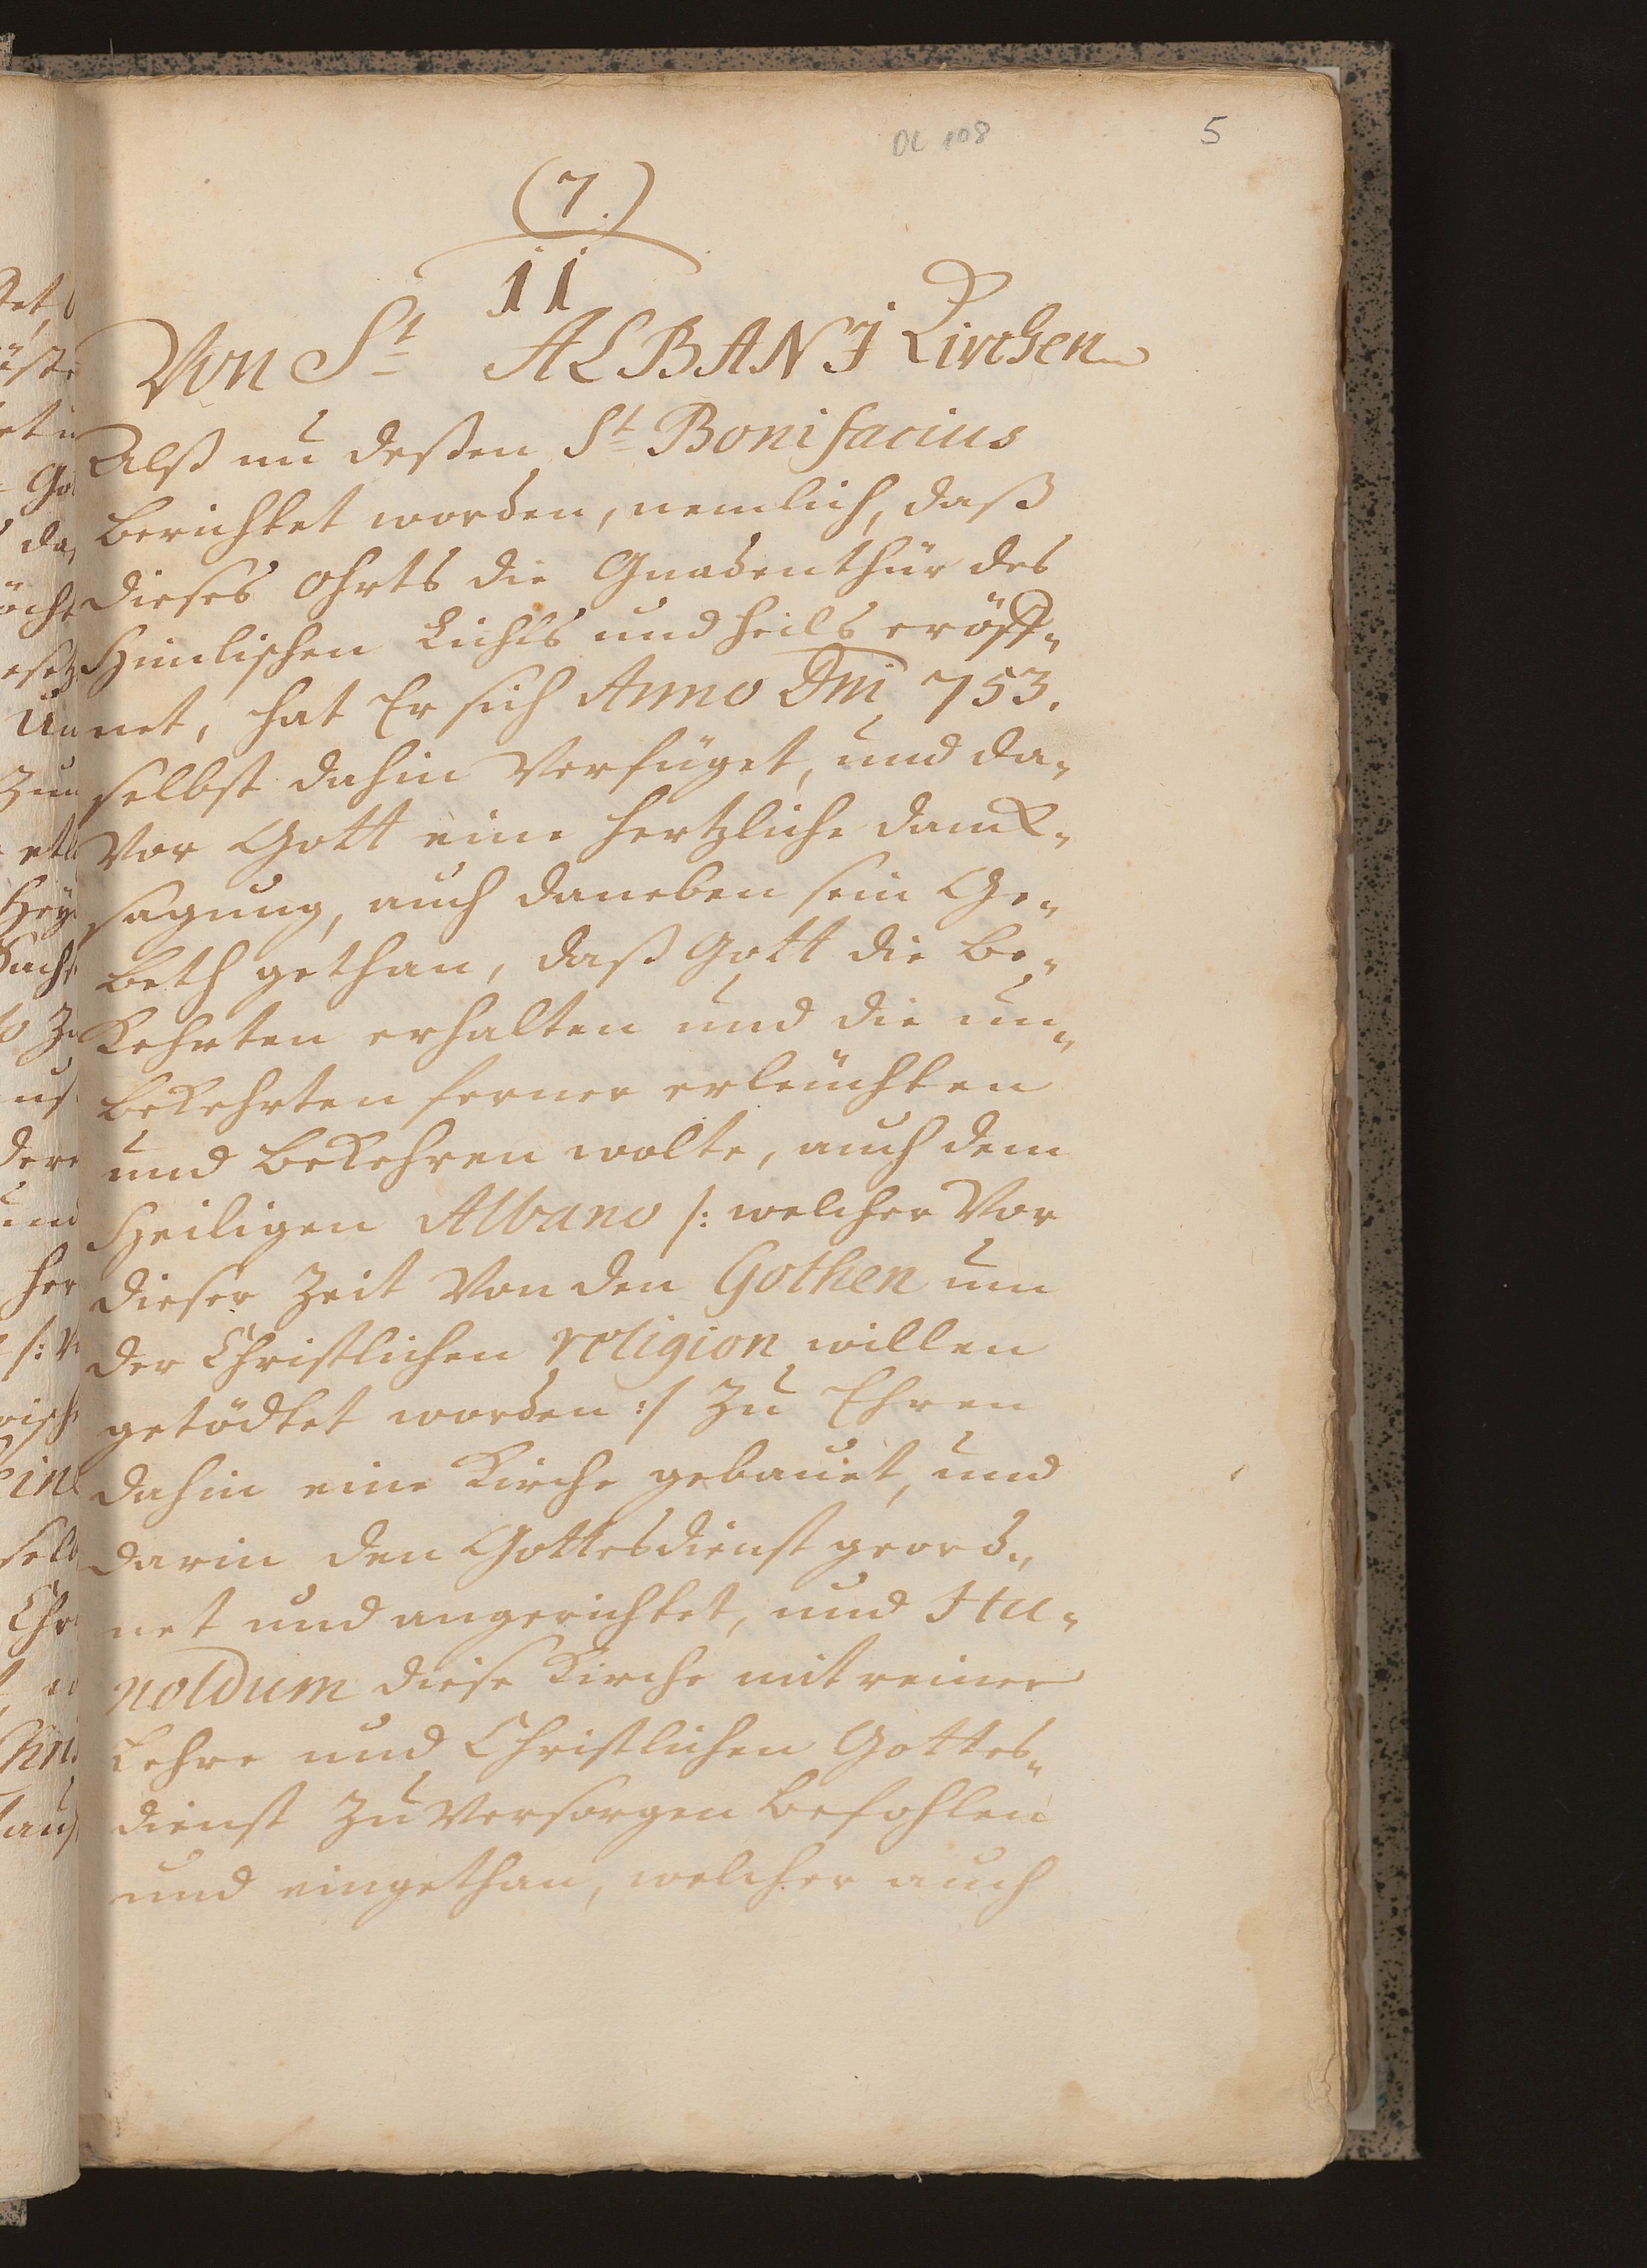 DC 108
5
(7.)
11
Von St ALBANI Kirchen
Alß nu deßen St Bonifacius
berichtet worden, nemlich, daß
dieses Ohrts die Gnadenthür des
Himlischen Lichts und heils eröff-
net, hat Er sich Anno Dni 753.
selbst dahin Verfüget, und da-
Vor Gott eine hertzliche danck-
sagung, auch daneben sein Ge-
beth gethan, daß Gott die be-
kehrten erhalten und die un-
bekehrten ferner erleüchten
und bekehren wolte, auch dem
Heiligen Albano /: welcher Vor
dieser Zeit Von den Gothen um
der Christlichen religion willen
getödtet worden :/ Zu Ehren
dahin eine Kirche gebauet, und
darin den Gottesdienst geord-
net und angerichtet, und Hu-
noldum diese Kirche mit reiner
Lehre und Christlichen Gottes-
dienst Zu Versorgen befohlen
und eingethan, welcher auch